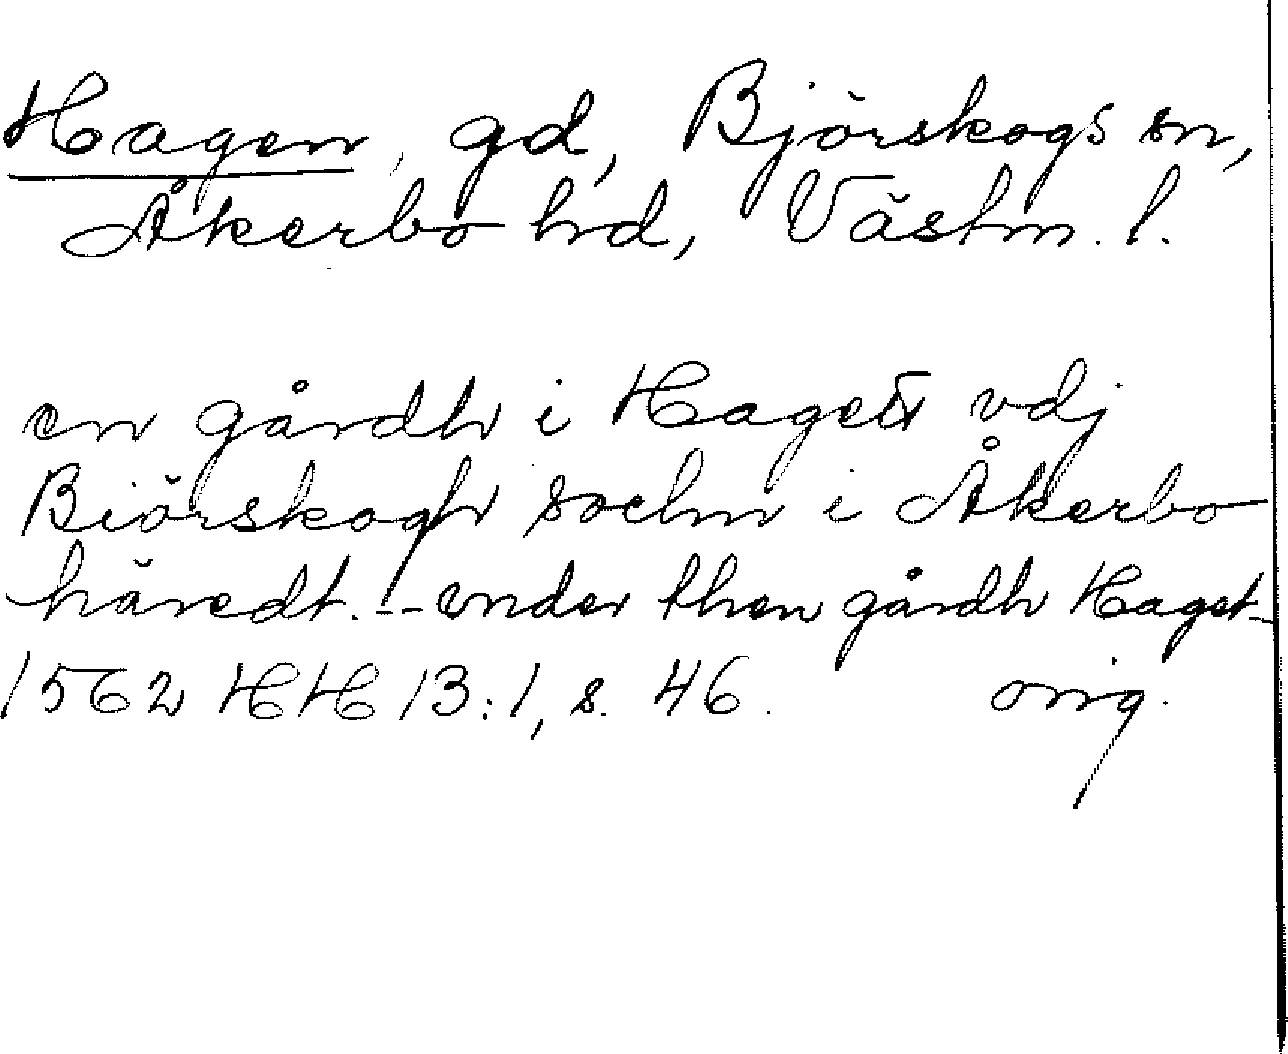 Hagen, gd, Björskogs sn,
Åkerbo hd, Västm. l.
en gårdh i Haget vdj
Biörskogh sochn i Åkerbo
häredt. -- vnder then gårdh Haget -
1562 HH 13:1, s. 46. orig.